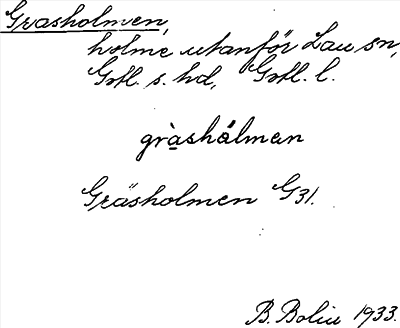 Grasholmen,
holme utanför Lau sn,
Gotl. s. hd, Gotl. l.
gràshålman
Gräsholmen G31.
B. Bolin 1933.